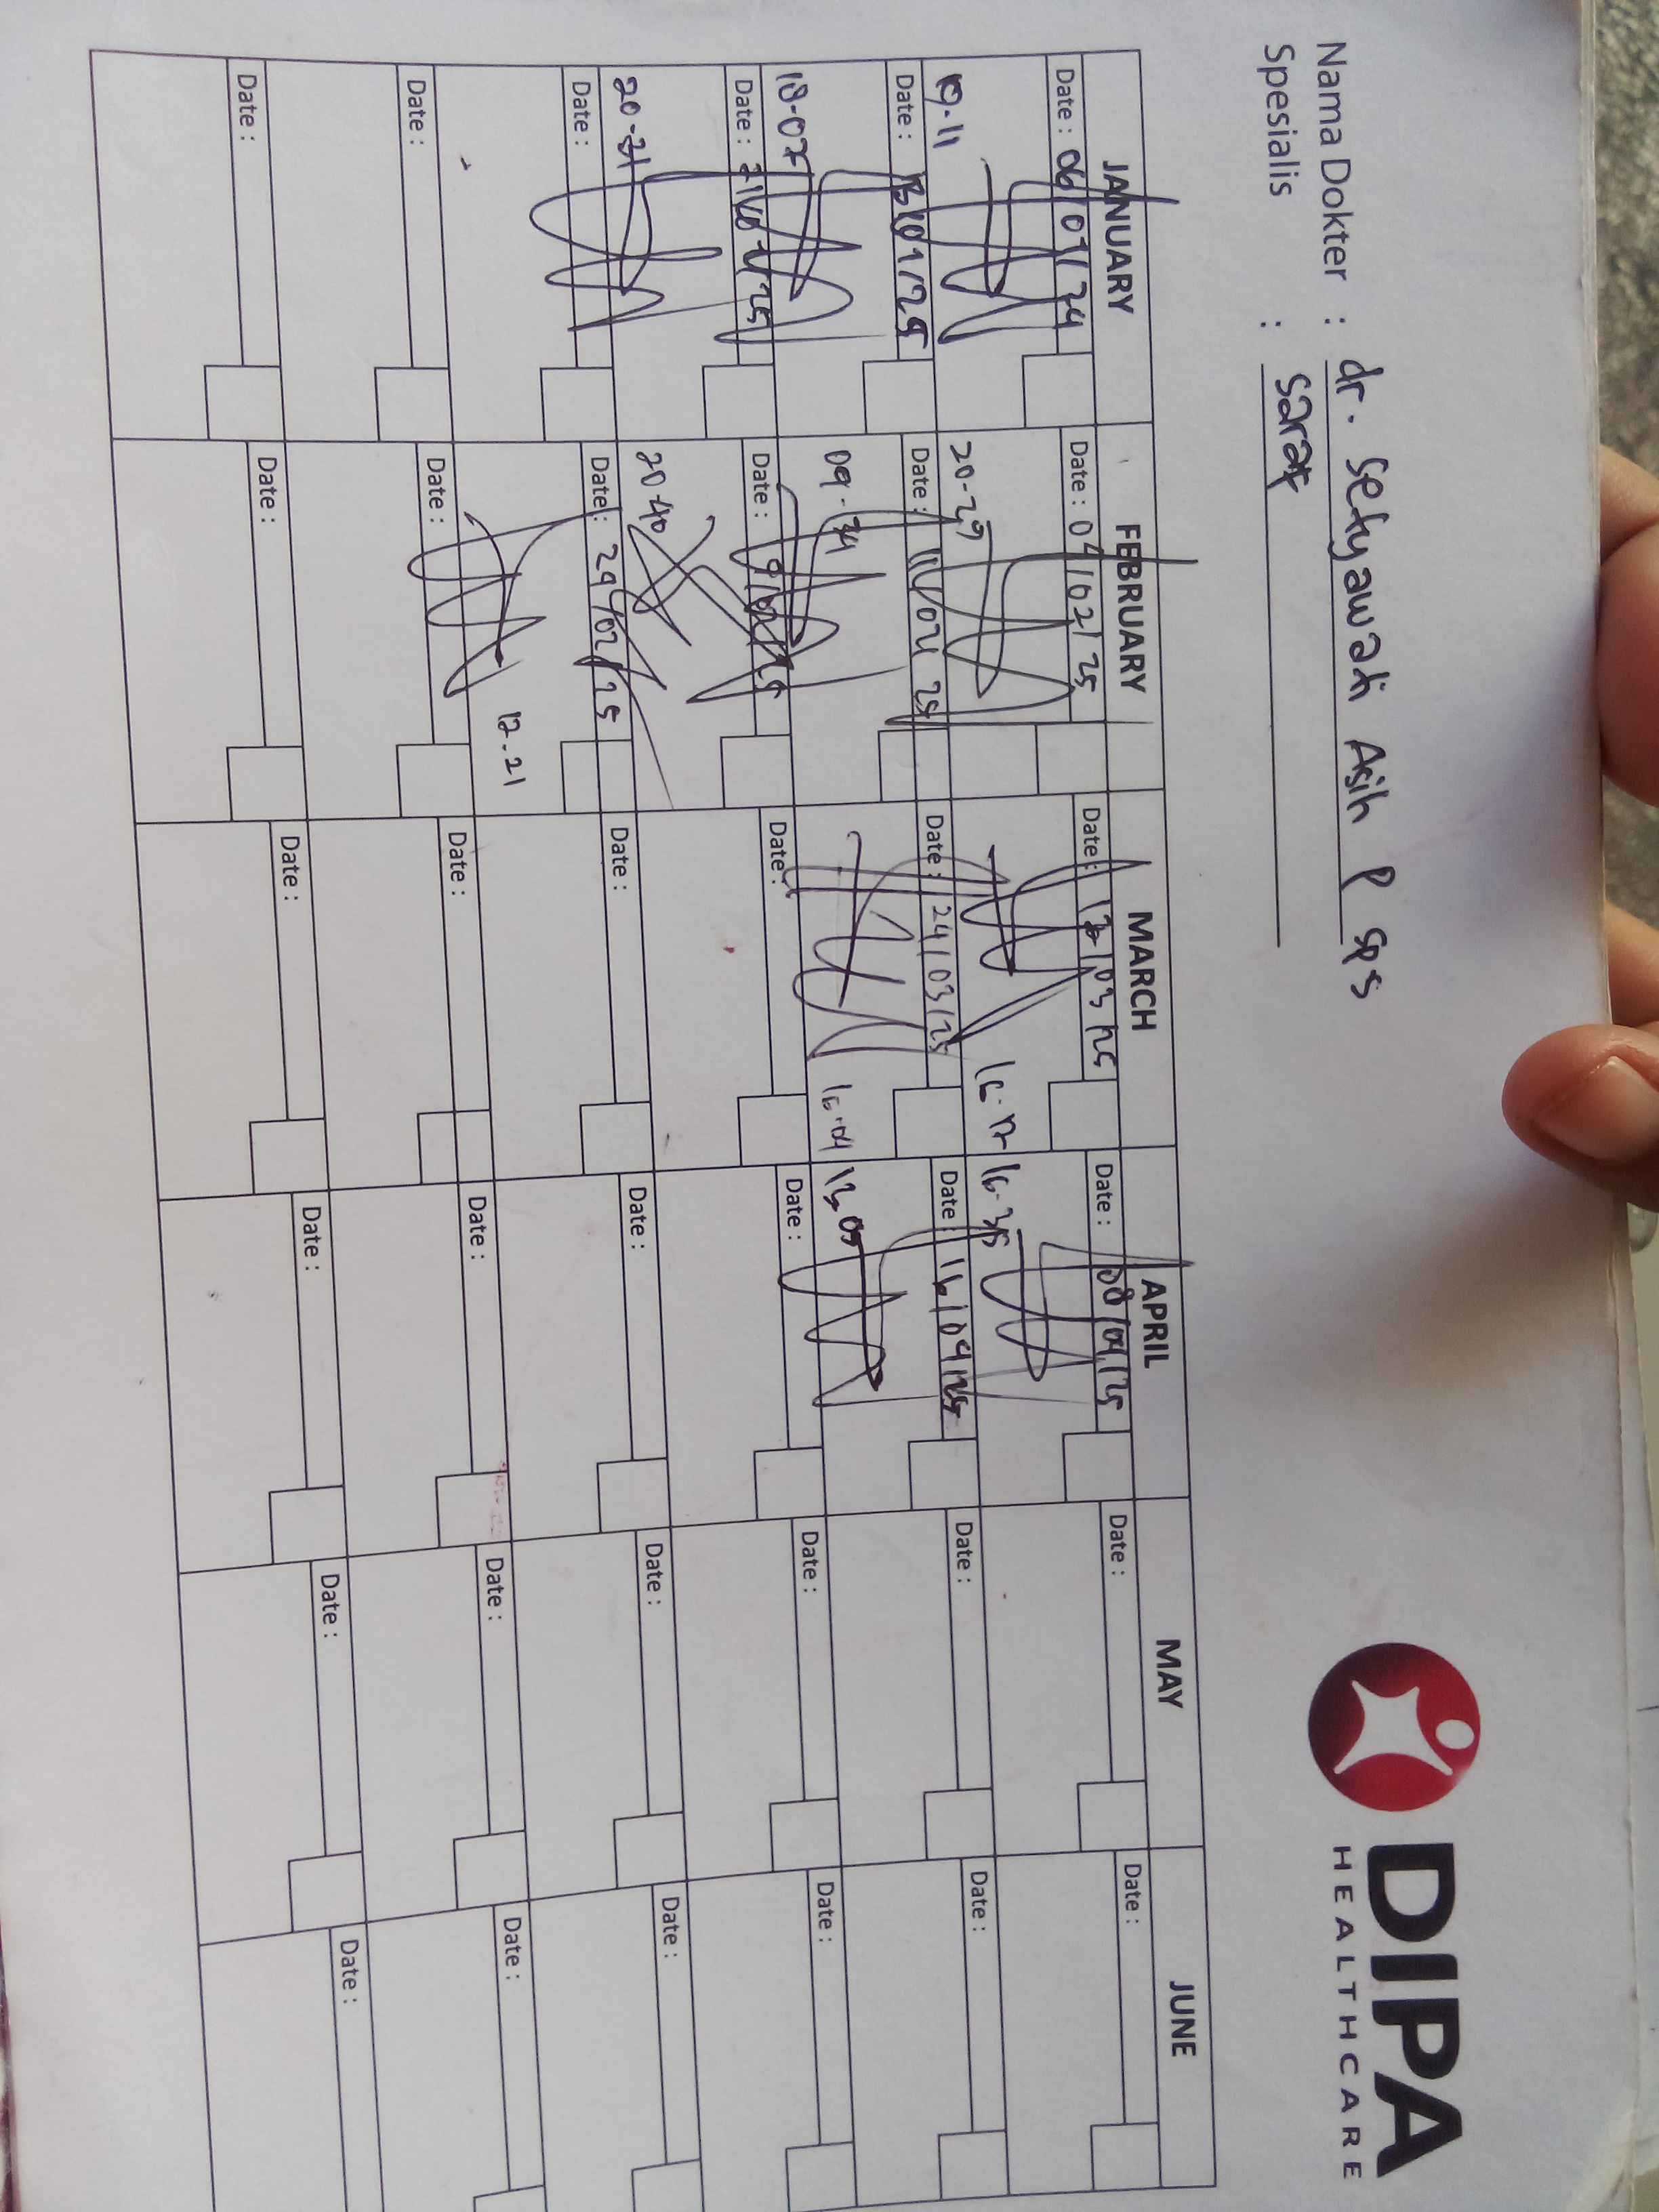 DIPA
HEALTHCARE
Nama Dokter : dr. Setyawati Asih P Sps
Spesialis : Saraf
JANUARY FEBRUARY MARCH APRIL MAY JUNE
Date : 06/01/24 Date : 04/02/25 Date : 13/03/25 Date : 08/04/25 Date : Date :
19.11 20-29 16.17 16.35
Date : 13/01/25 Date : 11/02/25 Date : 24/03/25 Date : 16/04/25 Date : Date :
18-07 09.34 16.04 13.09
Date : 21/01/25 Date : Date : Date : Date : Date :
20-31 20.40
Date : Date : 24/02/25 Date : Date : Date : Date :
12.21
Date : Date : Date : Date : Date : Date :
Date : Date : Date : Date : Date : Date :